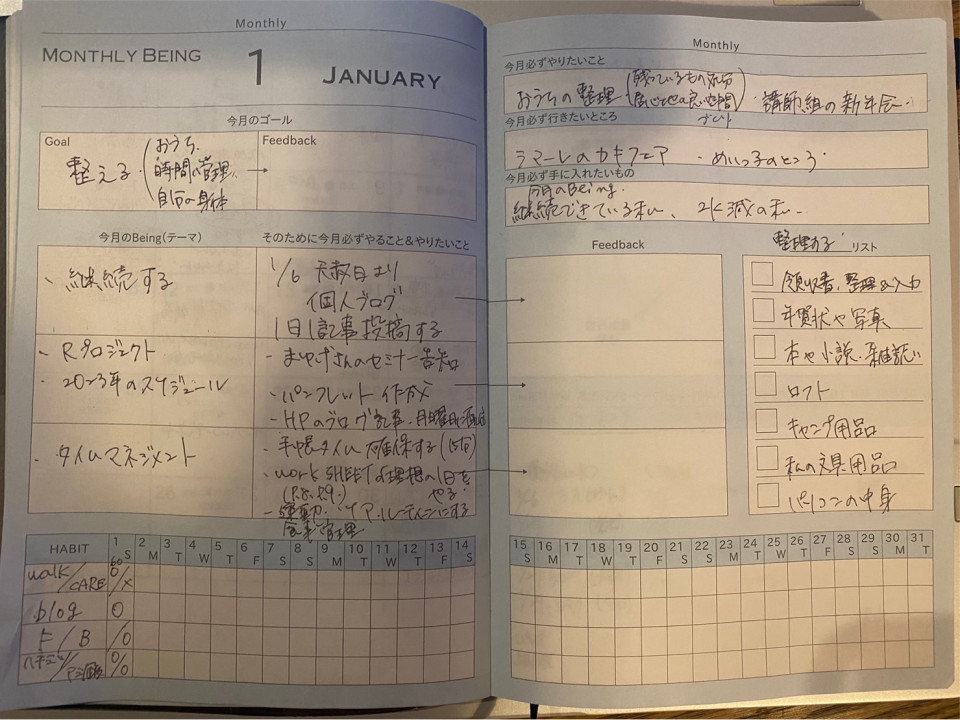 Monthly
MONTHLY BEING 1 JANUARY
今月のゴール
Goal
整える
おうち、
時間の管理、
自分の身体
Feedback
今月のBeing(テーマ)
そのために今月必ずやること&やりたいこと
継続する
1/6 天赦日より
個人ブログ
1日1記事投稿する
・Rプロジェクト
・2023年のスケジュール
・まゆげさんのセミナー告知
・パンフレット作成
・HPのブログ記事・月曜日に
・タイムマネジメント
・手帳タイム確保する
・work SHEETの理想の1日を
(P.8, P.9.) やる
・運動、ケア、ルーティンにする
管理
HABIT
1 2 3 4 5 6 7 8 9 10 11 12 13 14
S M T W T F S S M T W T F S
walk/CARE 60 0/x
blog 0
ト/B /0
0/0
Monthly
今月必ずやりたいこと
おうちの整理
残っているもの処分
居心地の良い空間
・講師組の新年会・
今月必ず行きたいところ
ラマーレのカキフェア ・めいっ子のところ
今月必ず手に入れたいもの
今月のBeing.
継続できている私、 2K減の私
Feedback
整理する リスト
領収書、整理&入力
年賀状や写真
本や小説、雑誌
ロフト
キャンプ用品
私の文具用品
パソコンの中身
15 16 17 18 19 20 21 22 23 24 25 26 27 28 29 30 31
S M T W T F S S M T W T F S S M T